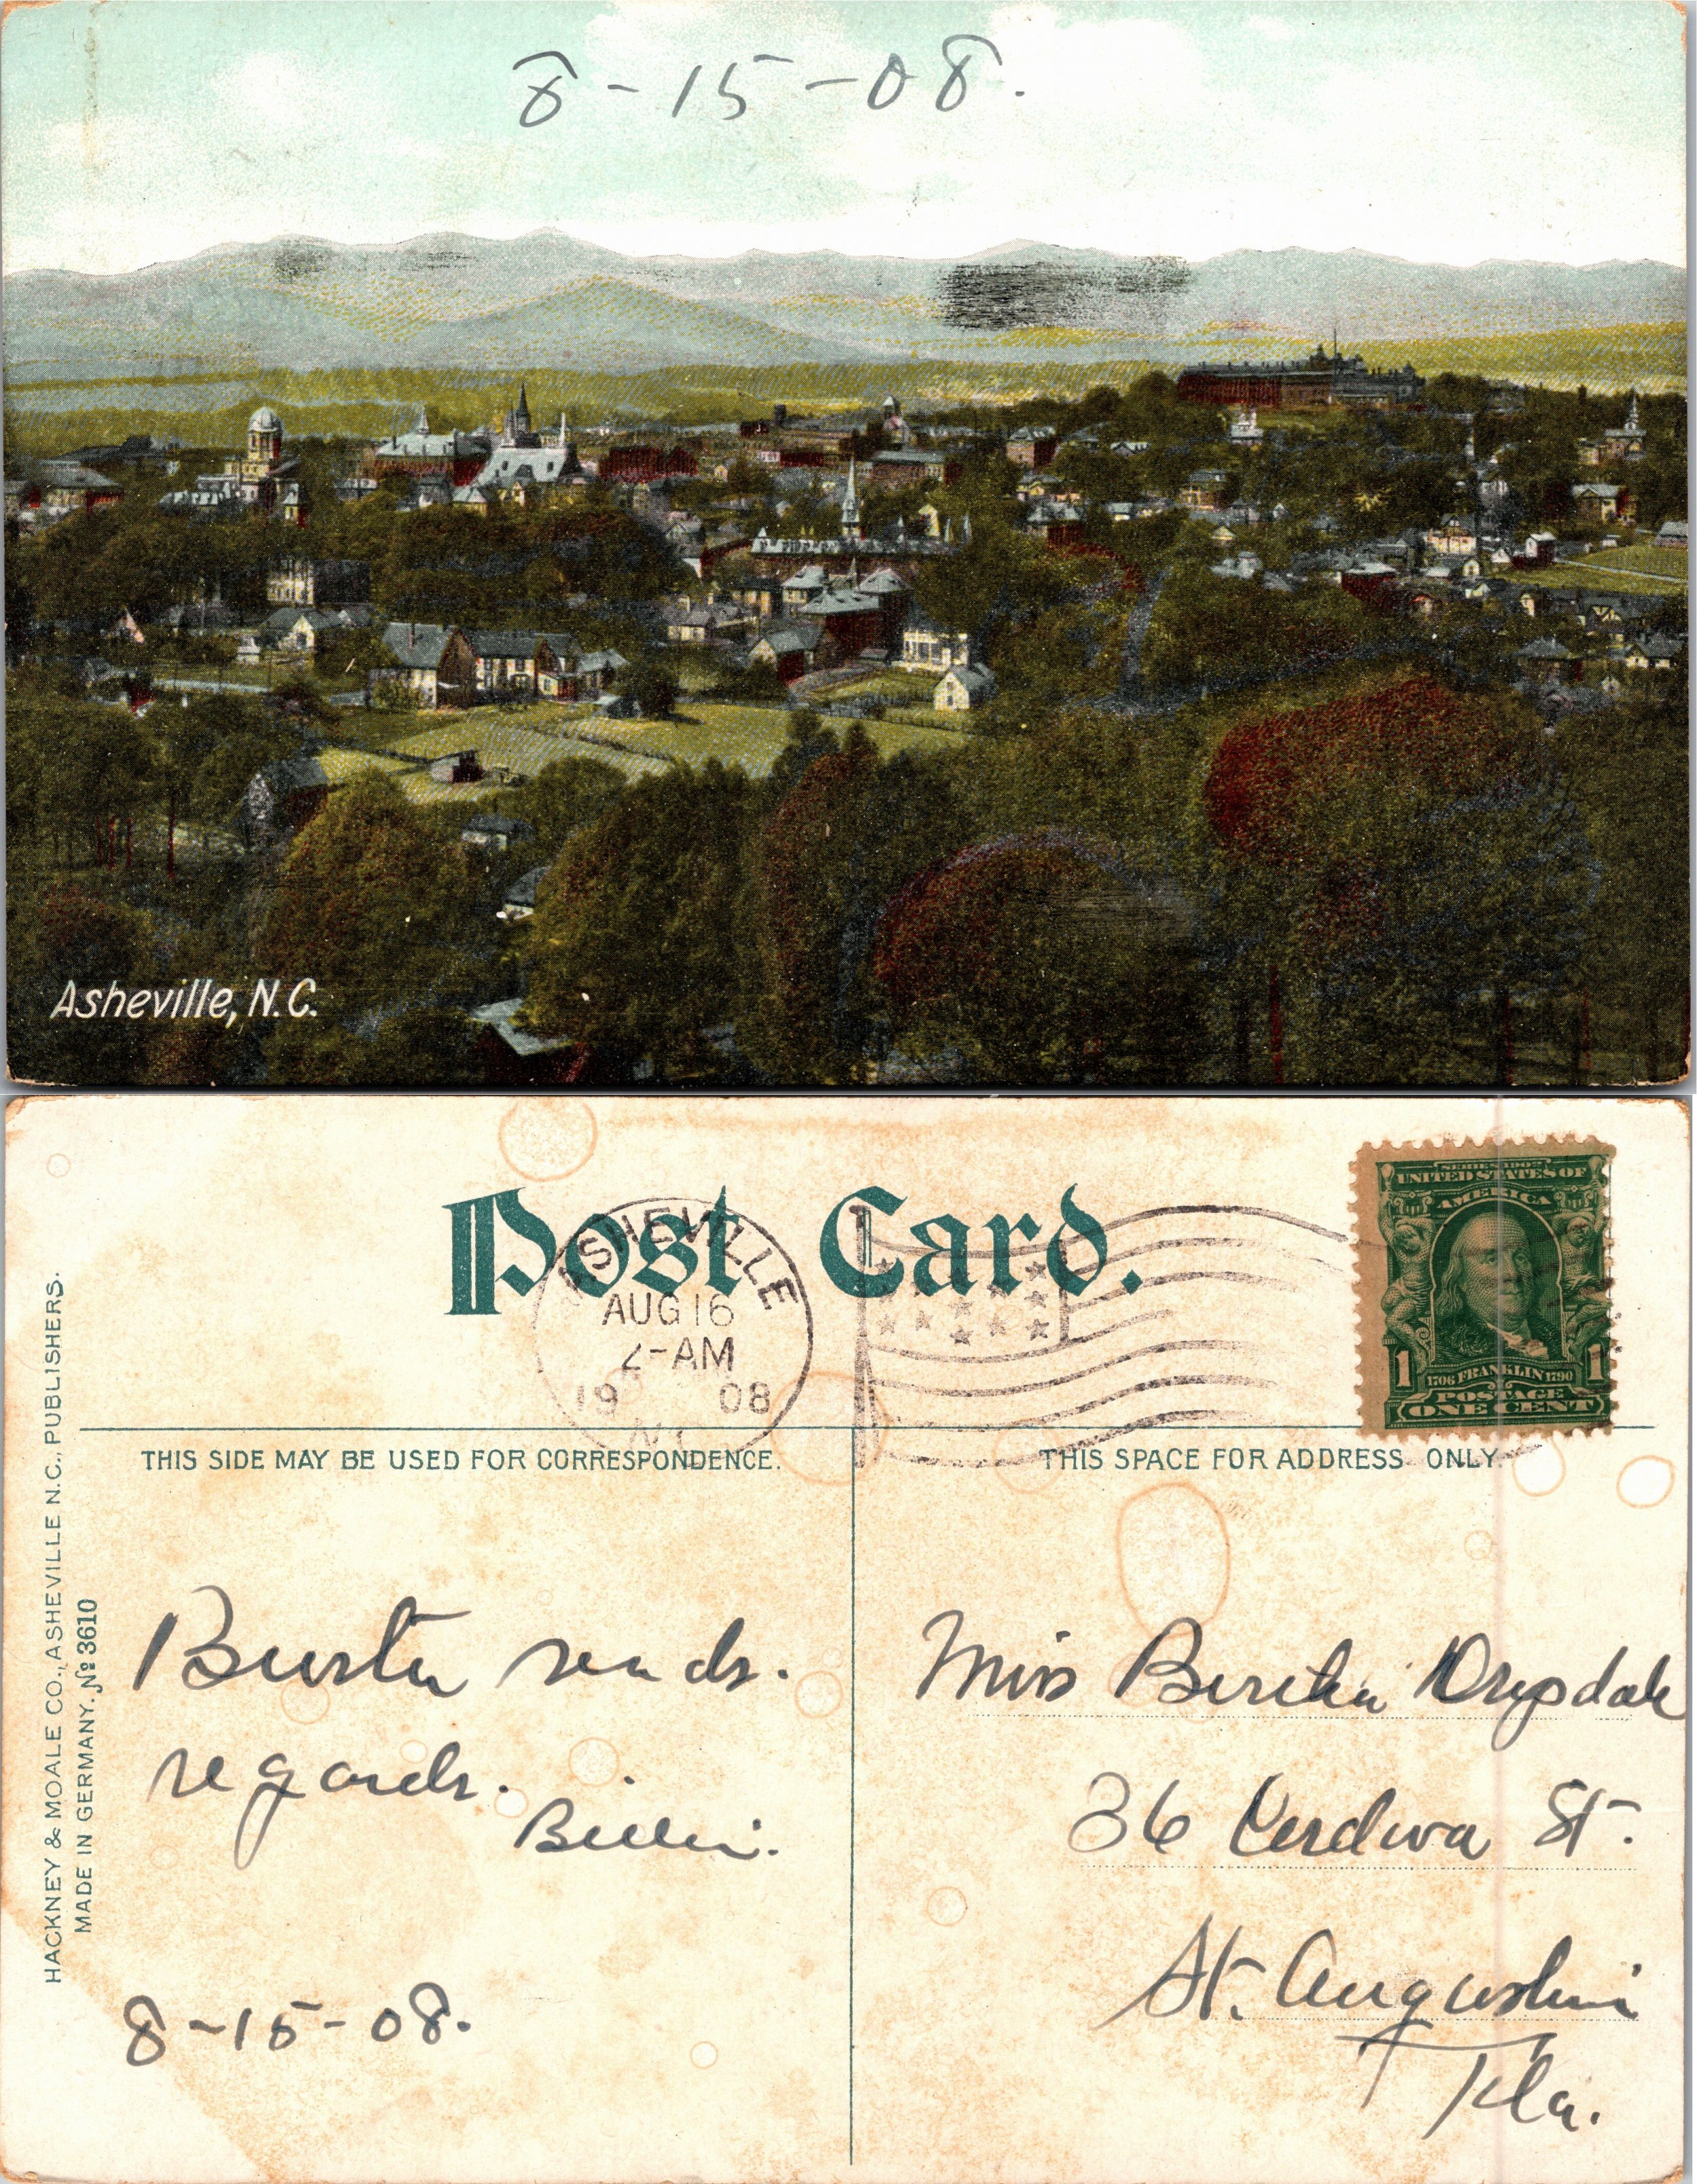 8-15-08.
Asheville, N.C.
Post Card.
ASHEVILLE
AUG 16
2-AM
1908
N.C.
SERIES 1902
UNITED STATES OF
AMERICA
1 1706 FRANKLIN 1790 1
POSTAGE
ONE CENT
HACKNEY & MOALE CO., ASHEVILLE N.C., PUBLISHERS.
MADE IN GERMANY. No 3610
THIS SIDE MAY BE USED FOR CORRESPONDENCE.
THIS SPACE FOR ADDRESS ONLY.
Buster sends.
regards.
Billie.
8-15-08.
Miss Bertha Drysdale
36 St.
St. Augustine
Fla.